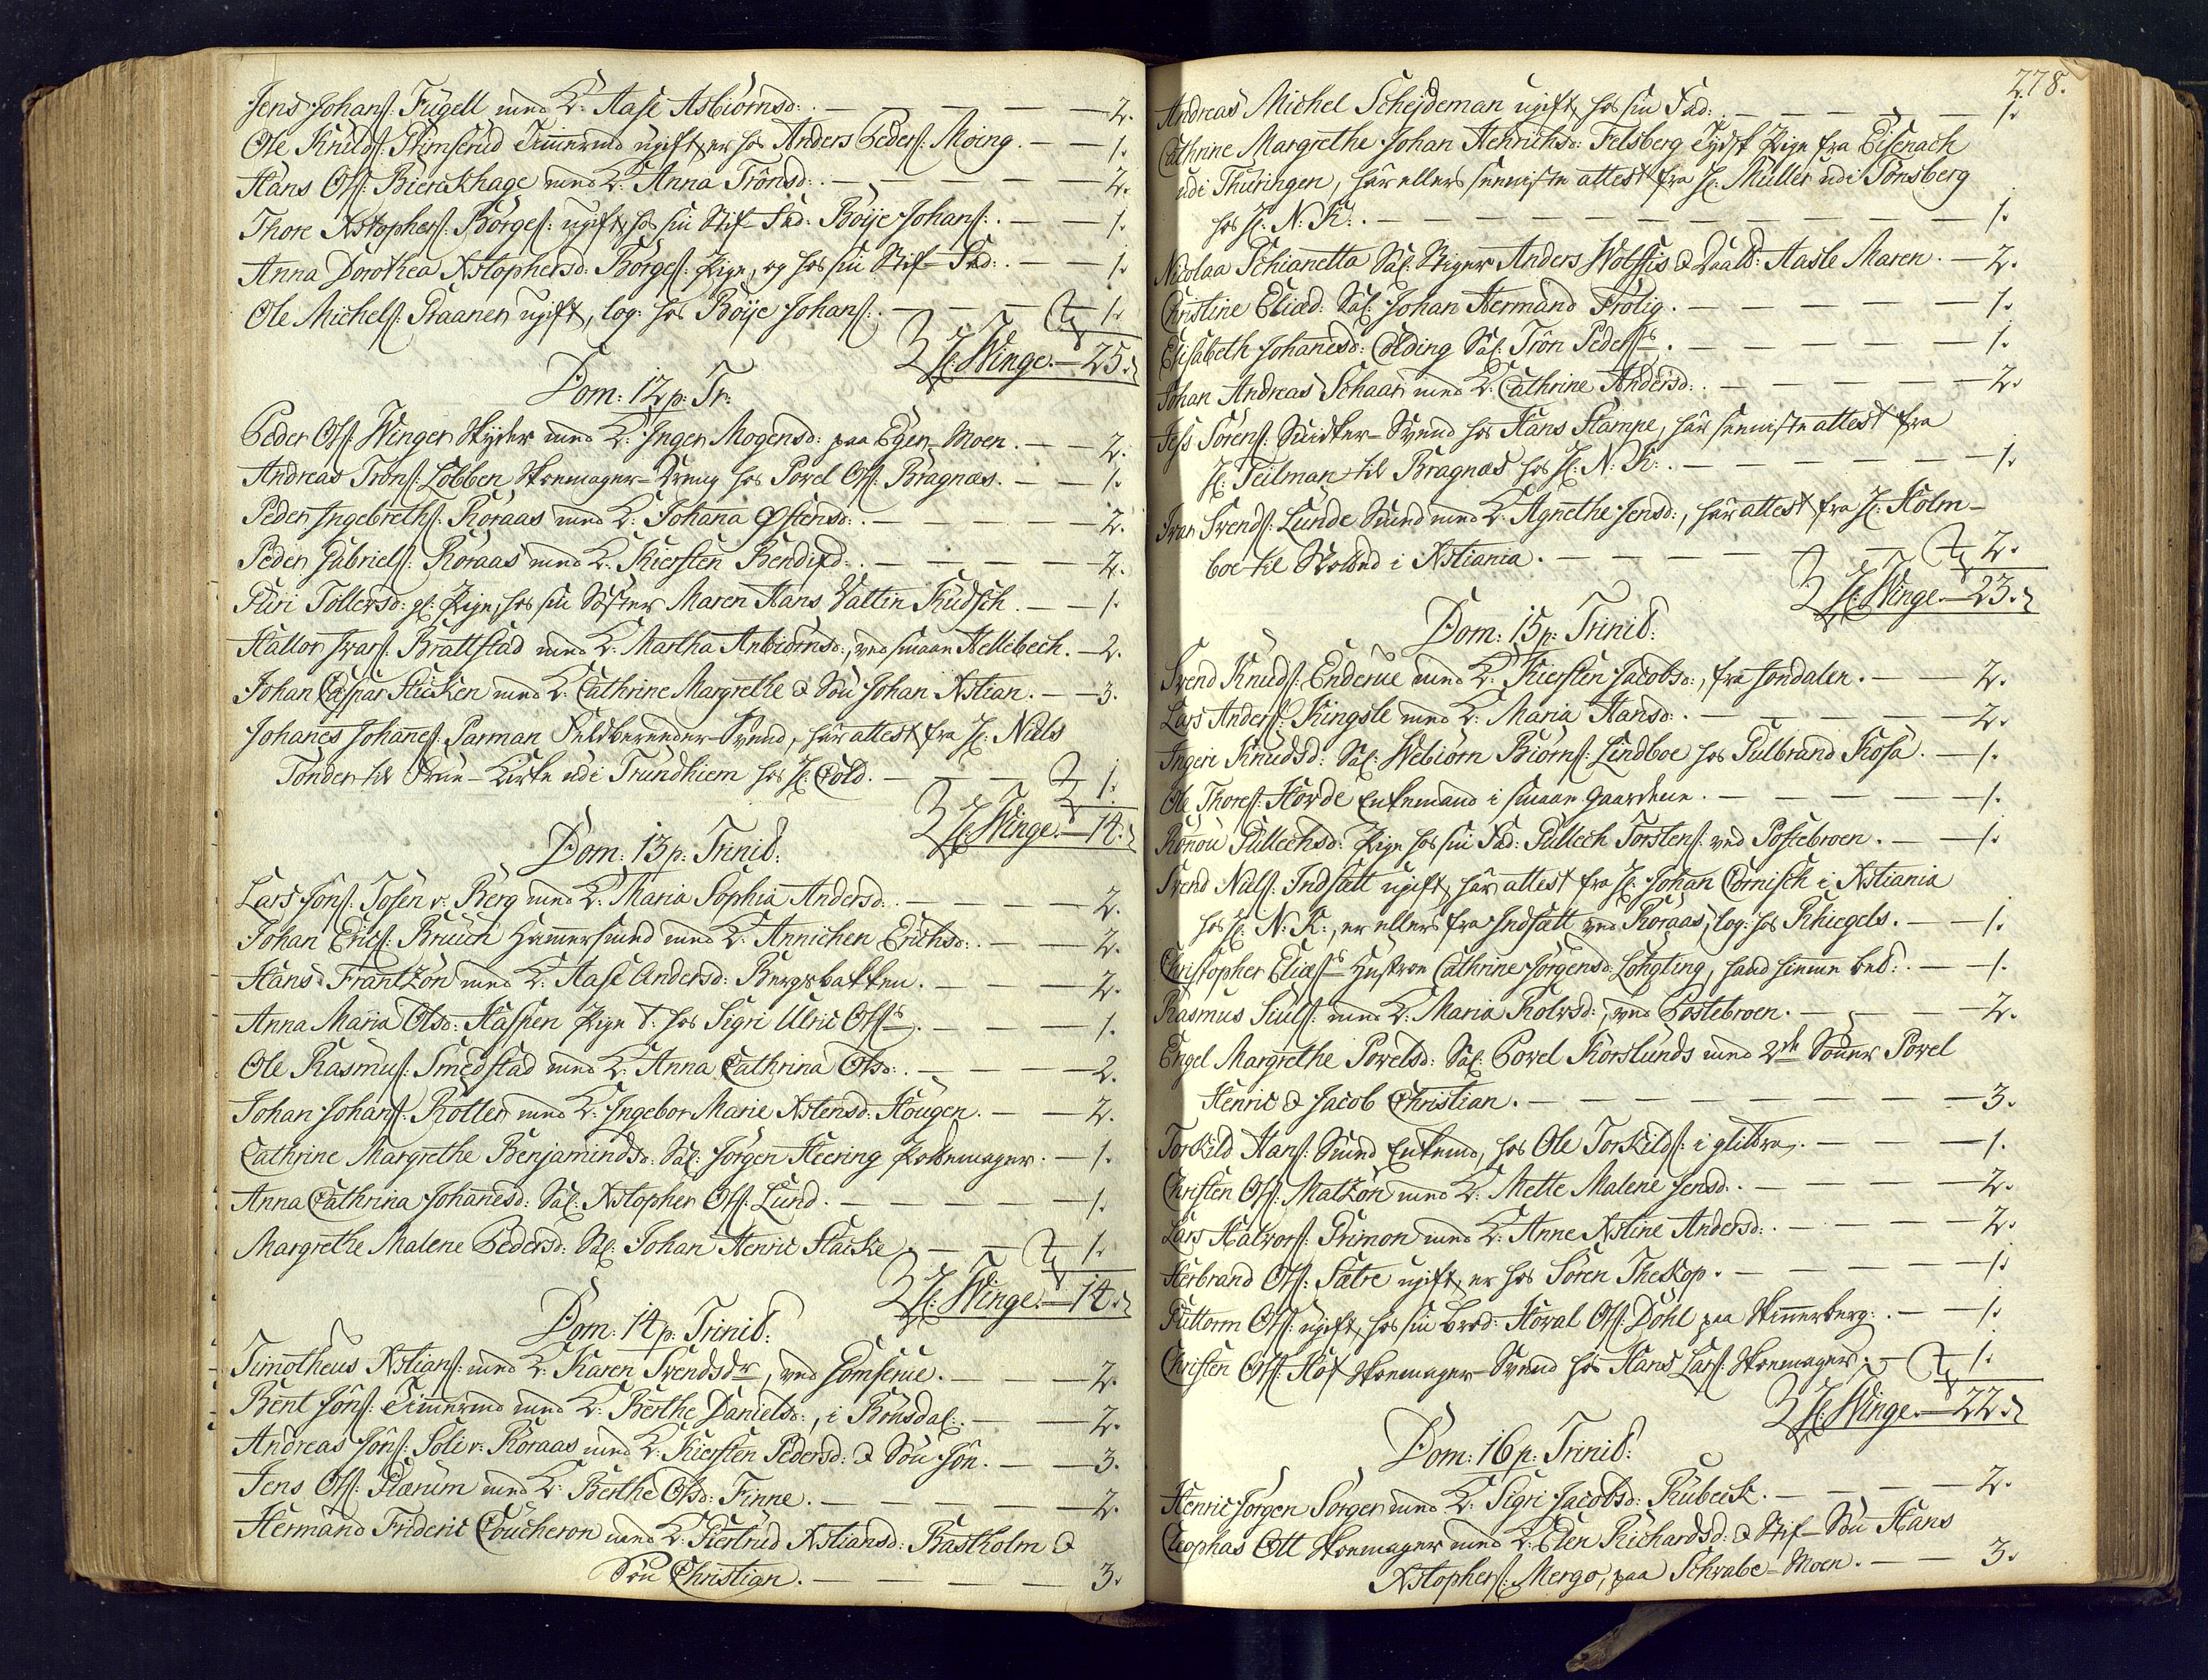 Jens Johans: Fugell med K: Aase Asbiörnsd: — 2.
Ole Knuds: Timermd ugift, er hos Anders Peders: Moing. — 1.
Hans Ols: Bierckhage med K: Anna Trönsd: — 2.
Thore Xstophers: Börges: ugift, hos sin Stif-Fad: Böije Johans: — 1.
Anna Dorothea Xstophersd: Börges: Pige, og hos sin Stif-Fad: — 1.
Ole Michels: ugift, log: hos Böije Johans: — 1.
H: Winge. — 25.
Dom: 12 p: Tr:
Peder Ols: Winger Skyder med K: Inger Mogensd: paa Egers Moen. — 2.
Andreas Trons: Lobben Skoemager-Dreng hos Povel Ols: Bragnæs. — 1.
Peder Ingebreths: Röraas med K: Johana Østensd: — 2.
Peder Gabriels: Röraas med K: Kiersten Bendixd: — 2.
Guri Tollevsd: gl: Pige, hos sin Söster Maren Hans Vattin Kudsch. — 1.
Hallor Ivars: Brattstad med K: Martha Anbiörnsd:, ved smaae Hellebech. — 2.
Johan Caspar Stücken med K: Cathrine Margrethe & Sön Johan Xstian. — 3.
Johanes Johanes: Parman Feldbereder-Svend, har attest fra H: Niels
Tönder til Frue-Kirke udi Trundhiem hos H: Cold. — 1.
H: Winge. — 14.
Dom: 13 p: Trinit:
Lars Jöns: Tosen v: Berg med K: Maria Sophia Andersd: — 2.
Johan Erics: Bruuch Hammersmed med K: Annichen Erichsd: — 2.
Hans Frantzön med K: Aase Andersd: Bergsbakken. — 2.
Anna Maria Olsd: Haspen Pige t: hos Sigri Ulric Ols: — 1.
Ole Rasmus: Smedstad med K: Anna Cathrina Olsd: — 2.
Johan Johans: Rotter med K: Ingebor Marie Xstensd: Hougen. — 2.
Cathrine Margrethe Benjamindsd: Sal: Jörgen Heering — 1.
Anna Cathrina Johanesd: Sal: Xstopher Ols: Lund. — 1.
Margrethe Malene Pedersd: Sal: Johan Henric Stacke — 1.
H: Winge. — 14.
Dom: 14 p: Trinit:
Timotheus Xstians: med K: Karen Svendsdr, ved Gomserue. — 2.
Bent Jöns: Timermd med K: Berthe Danielsd:, i Bonsdal: — 2.
Andreas Jöns: Soli v: Röraas med K: Kiersten Pedersd: & Sön Jön. — 3.
Jens Ols: Flærum med K: Berthe Olsd: Finne. — 2.
Hermand Frideric Coucheron med K: Giertrud Xstiansd: Bastholm &
Sön Christian. — 3.
278.
Andreas Michel Schejdeman ugift, hos sin Fad: — 1.
Cathrine Margrethe Johan Henrichsd: Felsberg Tydsk Pige fra Eisenach
udi Thüringen, har ellers seeniste attest fra H: Müller udi Tönsberg
hos H: N: K: — 1.
Nicolaa Schianetta Sal: Stiger Anders Wolffis & Daatt: Aasle Maren. — 2.
Christine Eliæd: Sal: Johan Hermand Frölig. — 1.
Elisabeth Johanesd: Colding Sal: Trön Peders: — 1.
Johan Andreas Schaar med K: Cathrine Andersd: — 2.
Jess Sörens: Snidker-Svend hos Hans Stampe, har seeniste attest fra
H: Teilman til Bragnæs hos H: N: K: — 1.
Ivar Svends: Lunde Smed med K: Agnethe Jensd:, har attest fra H: Holm-
boe til i Xstiania. — 2.
H: Winge. — 23.
Dom: 15 p: Trinit:
Svend Knuds: Enderue med K: Kiersten Jacobsd:, fra Jondalen. — 2.
Lars Anders: Kingsle med K: Maria Hansd: — 2.
Ingeri Knudsd: Sal: Webiörn Biörns: Lindboe hos Gulbrand Kosa. — 1.
Ole Thores: Horde Enkemand i smaae Gaardene. — 1.
Rönnou Gullechsd: Pige hos sin Fad: Gullech Torstens: ved Postebroen. — 1.
Svend Niels: Indsatt ugift, har attest fra H: Johan Cornisch i Xstiania
hos H: N: K:, er ellers fra Indsatt ved Röraas, log: hos Rhiegels. — 1.
Christopher Eliæs: Hustroe Cathrine Jörgensd: Lohgting, hand hiemme bet: — 1.
Rasmus Siuls: med K: Maria Rolvsd:, ved Postebroen. — 2.
Engel Margrethe Povelsd: Sal: Povel Korslunds med 2de Sönner Povel
Henric & Jacob Christian. — 3.
Torkild Hans: Smed Enkemd, hos Ole Torkilds: i glittre. — 1.
Christen Ols: Matzön med K: Mette Malene Jensd: — 2.
Lars Halvors: Primon med K: Anne Xstine Andersd: — 2.
Herbrand Ols: Sætre ugift, er hos Sören Theskop. — 1.
Guttorm Ols: ugift, hos sin brod: Hoval Ols: Dohl paa Skimerberg: — 1.
Christen Ols: Hof Skoemager-Svend hos Hans Lars: Skoemager: — 1.
H: Winge. — 22.
Dom: 16 p: Trinit:
Henric Jörgen Sorger med K: Sigri Jacobsd: Rubeck. — 2.
Cleophas Ott Skoemager med K: Elen Richardsd: & Stif-Sön Hans
Xstophers: Mergo, paa Schrabe-Moen. — 3.